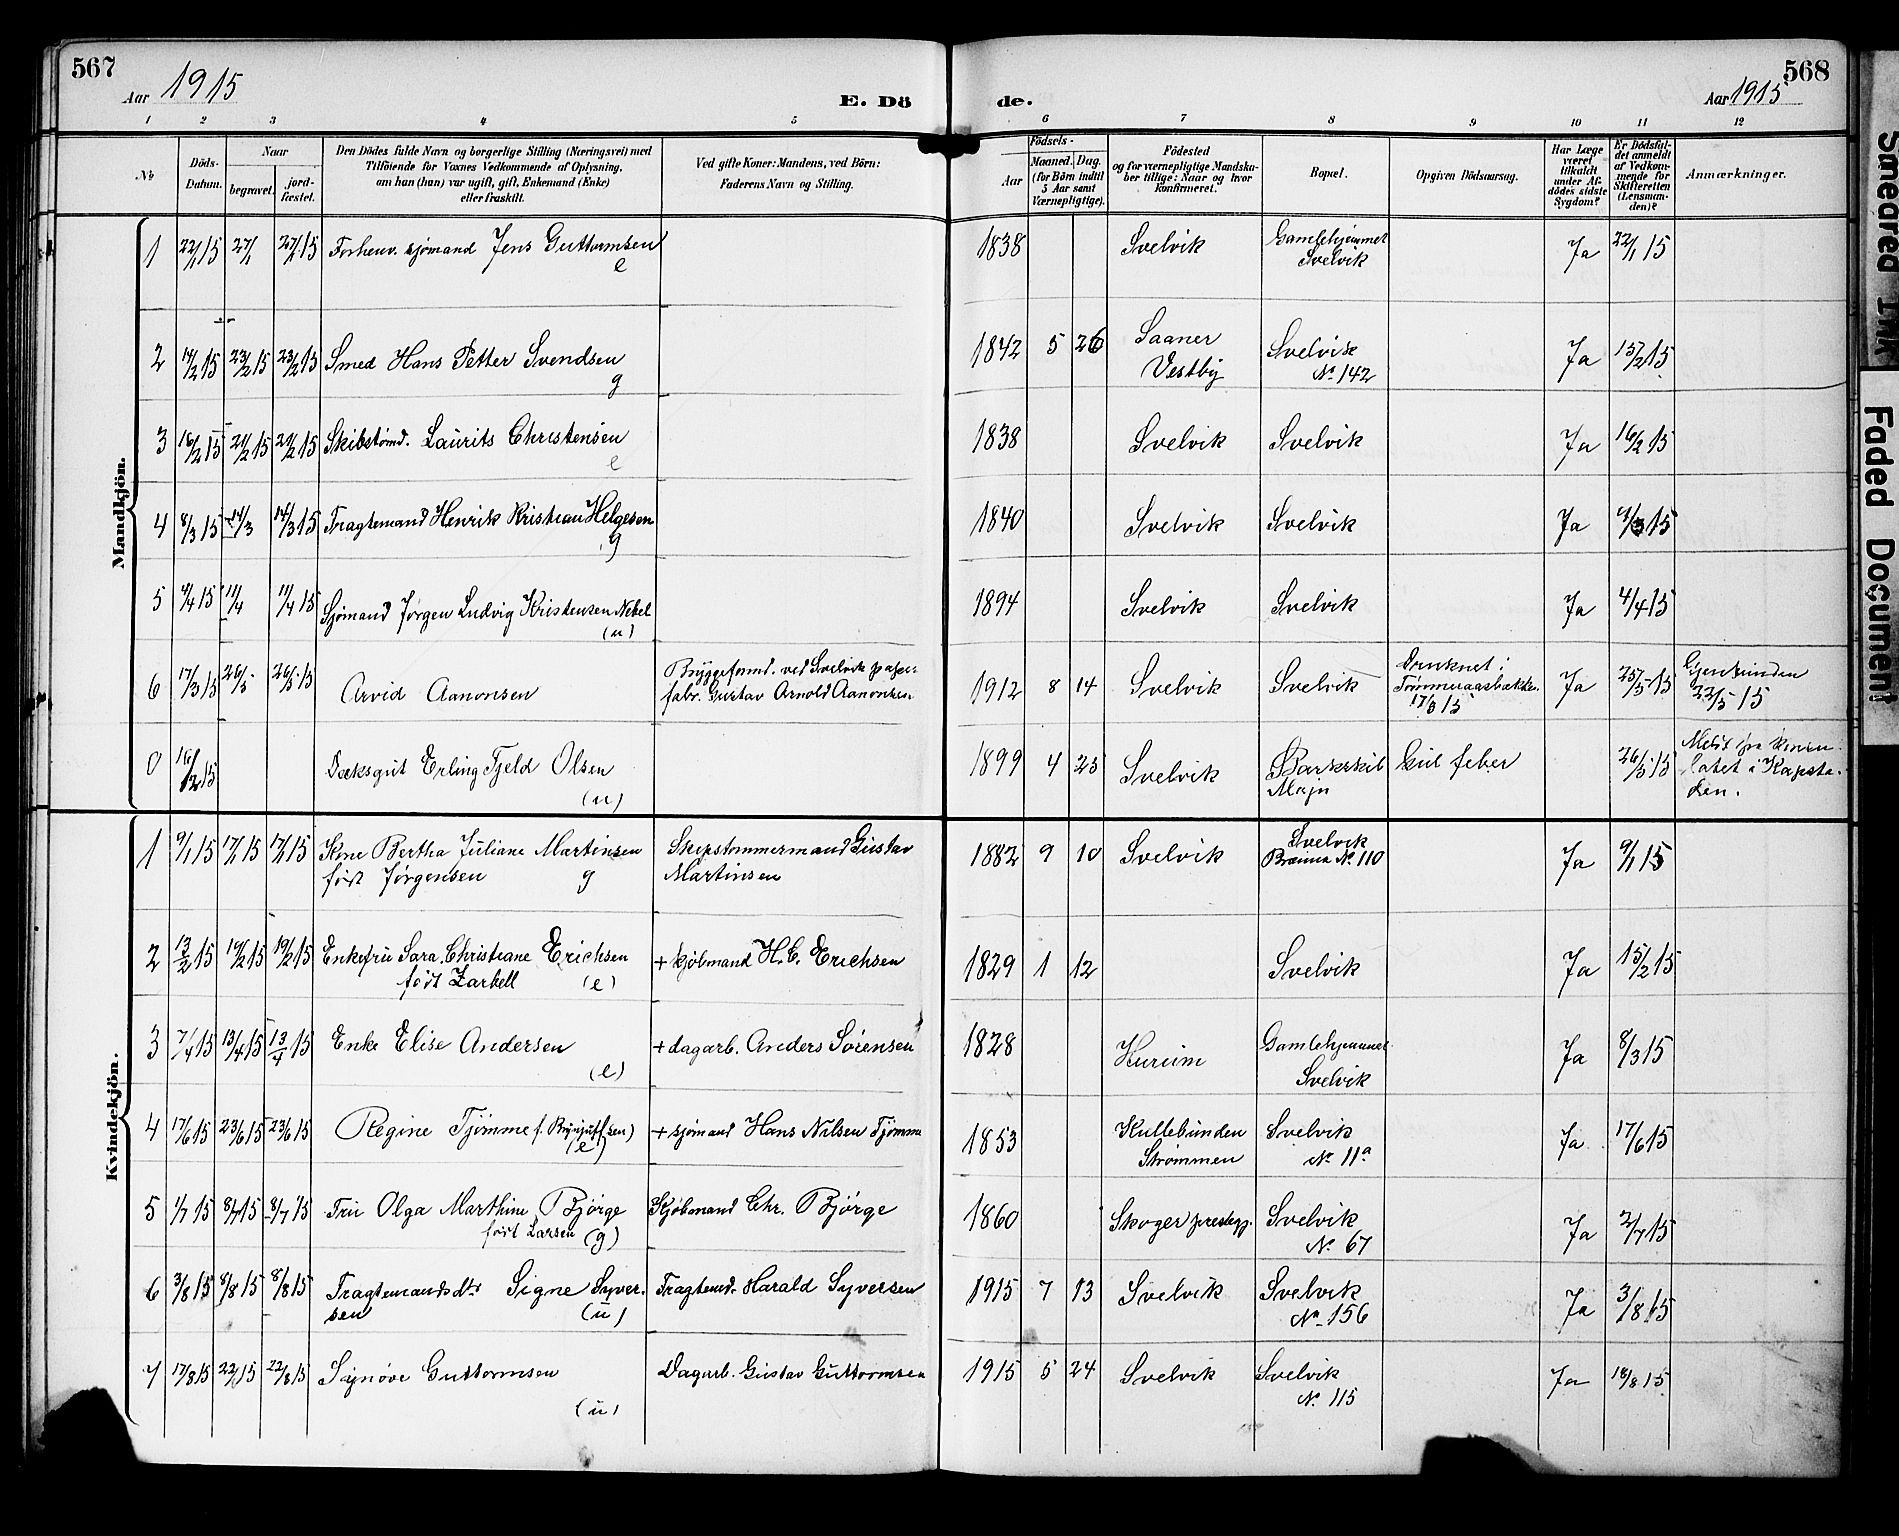 567
Aar 1915
E. Dö
de.
568
Aar 1915
1 2 3 4 5 6 7 8 9 10 11 12
No
Döds-
Datum.
Naar
begravet.
jord-
fæstet.
Den Dödes fulde Navn og borgerlige Stilling (Næringsvei) med
Tilföiende for Voxnes Vedkommende af Oplysning,
om han (hun) var ugift, gift, Enkemand (Enke)
eller fraskilt.
Ved gifte Koner: Mandens, ved Börn:
Faderens Navn og Stilling.
Födsels-
Aar
Maaned. Dag.
(for Börn indtil
5 Aar samt
Værnepligtige).
Födested
og for værnepligtige Mandska-
ber tillige: Naar og hvor
konfirmeret.
Bopæl.
Opgiven Dödsaarsag.
Har Læge
været
tilkaldt
under Af-
dödes sidste
Sygdom?
Er Dödsfal-
det anmeldt
af Vedkom-
mende for
Skifteretten
(Lensman-
den)?
Anmærkninger.
Mandkjön.
1 22/1 15 27/1 27/1 15 Forhenv. sjømand Jens Guttormsen 1838 Svelvik Gamlehjemmet Ja 22/1 15
e Svelvik
2 14/2 15 23/2 15 23/2 15 Smed Hans Petter Svendsen 1842 5 26 Saaner Svelvik Ja 15/2 15
g Vestby No 142
3 16/2 15 21/2 15 21/2 15 Skibstømd. Laurits Christensen 1838 Svelvik Svelvik Ja 16/2 15
e
4 8/3 15 14/3 14/3 15 Fragtemand Henrik Kristian Helgesen 1840 Svelvik Svelvik Ja 9/3 15
g
5 4/4 15 11/4 11/4 15 Sjømand Jørgen Ludvig Kristensen Nebel 1894 Svelvik Svelvik Ja 4/4 15
(u)
6 17/3 15 26/5 26/5 15 Arvid Aanonsen Bryggeformd. ved Svelvik papir-
fabr. Gustav Arnold Aanonsen 1912 8 14 Svelvik Svelvik Druknet i
Tømmeraasbækken
17/3 15 Ja 25/5 15 Gjenfunden
22/5 15
0 16/2 15 Dæksgut Erling Fjeld Olsen 1899 4 25 Svelvik Barkskib Gul feber 26/5 15 Meldt fra konsu-
(u) Majn latet i Kapsta-
den.
Kvindekjön.
1 9/1 15 17/1 15 17/1 15 Kone Bertha Juliane Martinsen Skipstømmermand Gustav 1882 9 10 Svelvik Svelvik Ja 9/1 15
født Jørgensen g Martinsen No 110
2 13/2 15 19/2 15 19/2 15 Enkefru Sara Christiane Erichsen + kjøbmand H. C. Erichsen 1829 1 12 Svelvik Ja 15/2 15
født Zarbell (e)
3 7/4 15 13/4 15 13/4 15 Enke Elise Andersen + dagarb. Anders Sørensen 1828 Hurum Gamlehjemmet Ja 8/3 15
(e) Svelvik
4 17/6 15 23/6 15 23/6 15 Regine Tjømme f. Brynjulfsen) + sjømand Hans Nilsen Tjømme 1853 Kullebunden Svelvik Ja 17/6 15
(e) Strømmen No 11a
5 1/7 15 8/7 15 8/7 15 Fru Olga Marthine Bjørge Kjøbmand Chr. Bjørge 1860 Skoger prestegj. Svelvik Ja 2/7 15
født Larsen (g) No 67
6 3/8 15 8/8 15 8/8 15 Fragtemandsdtr Signe Syver- Fragtemd. Harald Syversen 1915 7 13 Svelvik Svelvik Ja 3/8 15
sen (u) No 156
7 17/8 15 22/ 15 22/8 15 Synøve Guttormsen Dagarb. Gustav Guttormsen 1915 5 24 Svelvik Svelvik Ja 18/8 15
(u) No 115
Smeared Ink
Faded Document